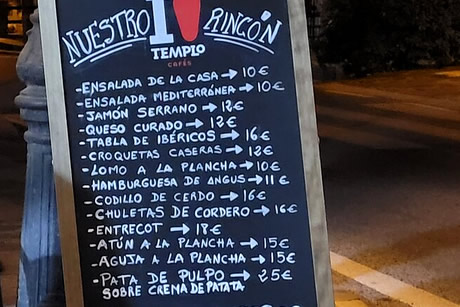 NUESTRO RINCÓN
TEMPLO
CAFÉS
-ENSALADA DE LA CASA → 10€
-ENSALADA MEDITERRÁNEA → 10€
-JAMÓN SERRANO → 12€
-QUESO CURADO → 12€
-TABLA DE IBÉRICOS → 16€
-CROQUETAS CASERAS → 12€
-LOMO A LA PLANCHA → 10€
-HAMBURGUESA DE ANGUS → 11€
-CODILLO DE CERDO → 16€
-CHULETAS DE CORDERO → 16€
-ENTRECOT → 18€
-ATÚN A LA PLANCHA → 15€
-AGUJA A LA PLANCHA → 15€
-PATA DE PULPO → 25€
SOBRE CREMA DE PATATA